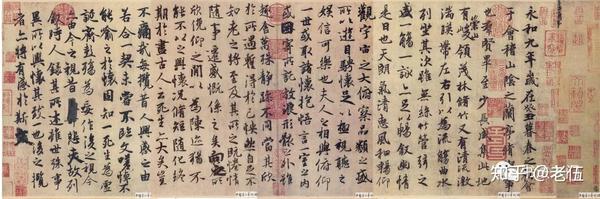 永和九年歲在癸丑暮春之初會
于會稽山陰之蘭亭脩禊事
也羣賢畢至少長咸集此地
有峻領茂林脩竹又有清流激
湍暎帶左右引以為流觴曲水
列坐其次雖無絲竹管弦之
盛一觴一詠亦足以暢敘幽情
是日也天朗氣清惠風和暢仰
觀宇宙之大俯察品類之盛
所以遊目騁懷足以極視聽之
娛信可樂也夫人之相與俯仰
一世或取諸懷抱悟言一室之內
或因寄所託放浪形骸之外雖
趣舍萬殊靜躁不同當其欣
於所遇暫得於己怏然自足不
知老之將至及其所之既惓情
隨事遷感慨係之矣向之所
欣俛仰之閒以為陳迹猶不
能不以之興懷況脩短隨化終
期於盡古人云死生亦大矣豈
不痛哉每攬昔人興感之由
若合一契未嘗不臨文嗟悼不
能喻之於懷固知一死生為虛
誕齊彭殤為妄作後之視今
亦由今之視昔悲夫故列
敘時人錄其所述雖世殊事
異所以興懷其致一也後之攬
者亦將有感於斯文
知乎 @老伍